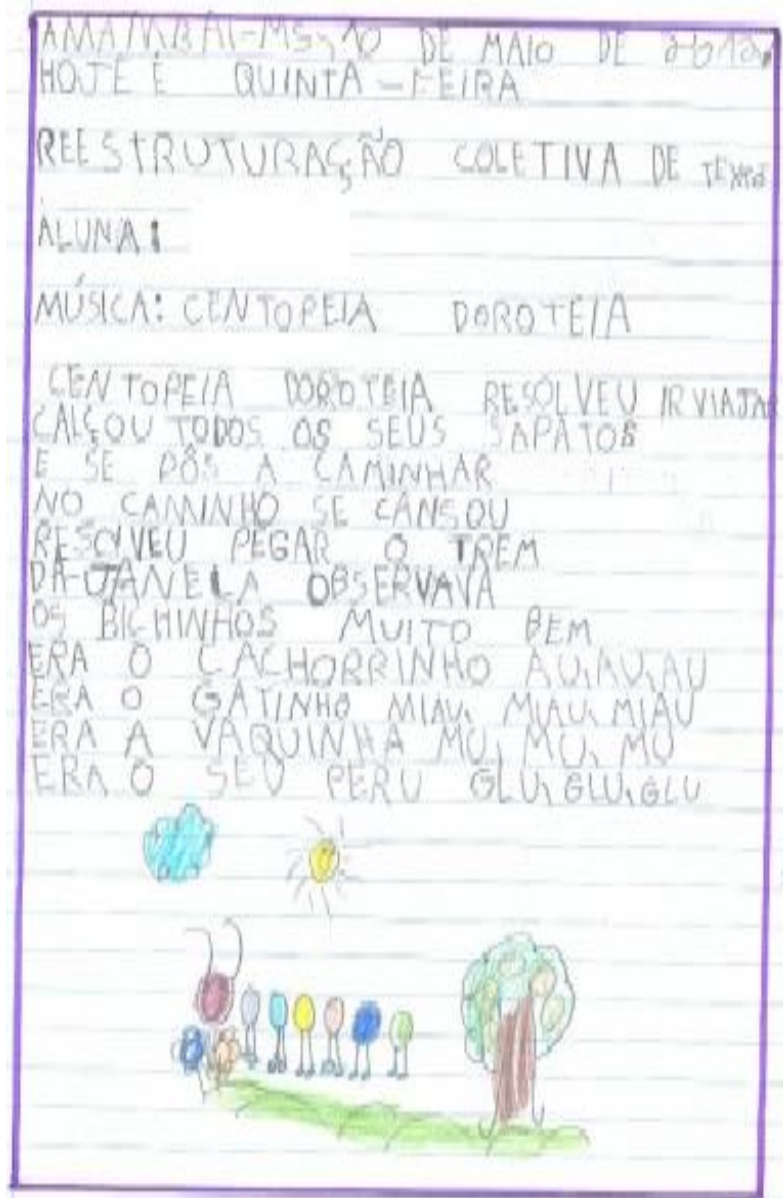 AMAMBAI-MS, 10 DE MAIO DE 2012.
HOJE É QUINTA-FEIRA
REESTRUTURAÇÃO COLETIVA DE TEXTO
ALUNA:
MÚSICA: CENTOPEIA DOROTÉIA
CENTOPEIA DOROTEIA RESOLVEU IR VIAJAR
CALÇOU TODOS OS SEUS SAPATOS
E SE PÔS A CAMINHAR
NO CAMINHO SE CANSOU
RESOLVEU PEGAR O TREM
DA JANELA OBSERVAVA
OS BICHINHOS MUITO BEM
ERA O CACHORRINHO AU, AU, AU
ERA O GATINHO MIAU, MIAU, MIAU
ERA A VAQUINHA MU, MU, MU
ERA O SEU PERU GLU, GLU, GLU